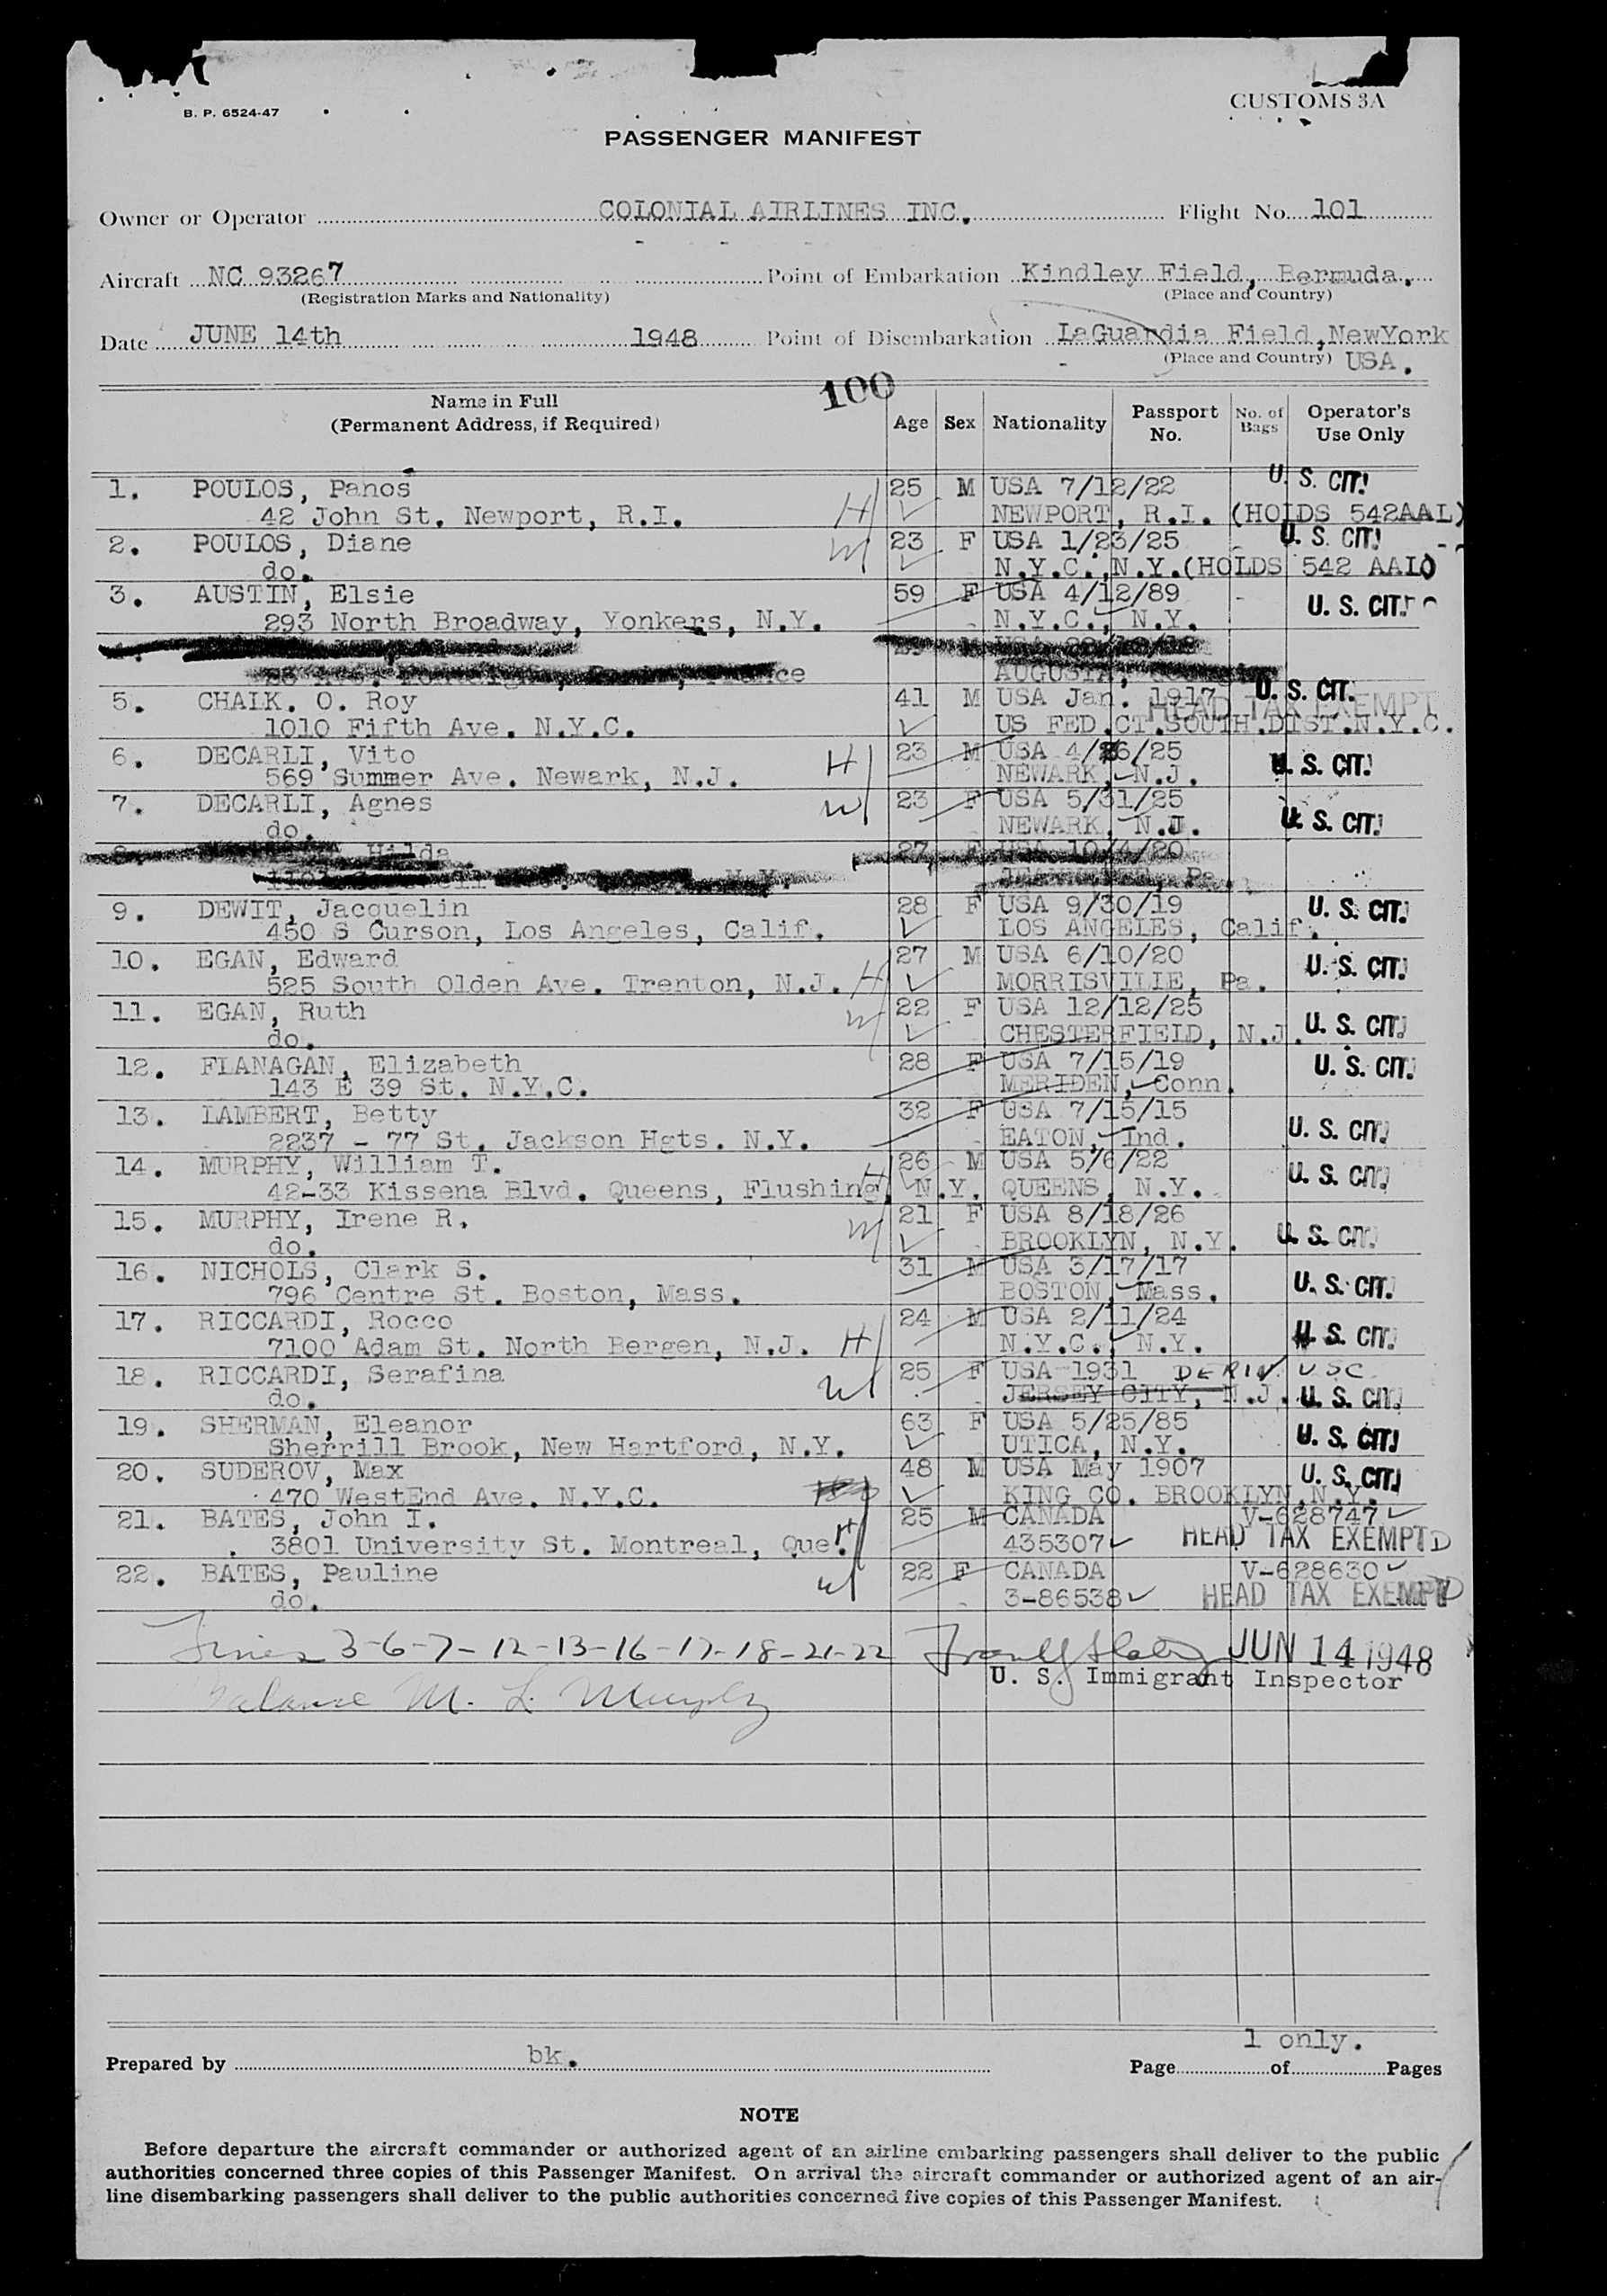 B. P. 6524-47
CUSTOMS 3A
PASSENGER MANIFEST
Owner or Operator COLONIAL AIRLINES INC. Flight No. 101
Aircraft NC 93267 Point of Embarkation Kindley Field, Bermuda.
(Registration Marks and Nationality) (Place and Country)
Date JUNE 14th 1948 Point of Disembarkation LaGuardia Field, NewYork
(Place and Country) USA.
100
Name in Full
(Permanent Address, if Required)
Age Sex Nationality Passport No. No. of Bags Operator's Use Only
1. POULOS, Panos 25 M USA 7/12/22 U. S. CIT.
42 John St. Newport, R.I. H NEWPORT, R.I. (HOLDS 542AAL)
2. POULOS, Diane W 23 F USA 1/23/25 U. S. CIT.
do. N.Y.C., N.Y. (HOLDS 542 AAL)
3. AUSTIN, Elsie 59 F USA 4/12/89 U. S. CIT.
293 North Broadway, Yonkers, N.Y. N.Y.C., N.Y.
4.
AUGUSTA,
5. CHALK. O. Roy 41 M USA Jan. 1917 U. S. CIT.
HEAD TAX EXEMPT
1010 Fifth Ave. N.Y.C. US FED.CT.SOUTH.DIST.N.Y.C.
6. DECARLI, Vito H 23 M USA 4/26/25 U. S. CIT.
569 Summer Ave. Newark, N.J. NEWARK, N.J.
7. DECARLI, Agnes W 23 F USA 5/31/25 U. S. CIT.
do. NEWARK, N.J.
8. Hilda 27 F USA 10/4/20
N.Y. Pa.
9. DEWIT, Jacquelin 28 F USA 9/30/19 U. S. CIT.
450 S Curson, Los Angeles, Calif. LOS ANGELES, Calif.
10. EGAN, Edward 27 M USA 6/10/20 U. S. CIT.
525 South Olden Ave. Trenton, N.J. H MORRISVILLE, Pa.
11. EGAN, Ruth W 22 F USA 12/12/25 U. S. CIT.
do. CHESTERFIELD, N.J.
12. FLANAGAN, Elizabeth 28 F USA 7/15/19 U. S. CIT.
143 E 39 St. N.Y.C. MERIDEN, Conn.
13. LAMBERT, Betty 32 F USA 7/15/15 U. S. CIT.
2237 - 77 St. Jackson Hgts. N.Y. EATON, Ind.
14. MURPHY, William T. H 26 M USA 5/6/22 U. S. CIT.
42-33 Kissena Blvd. Queens, Flushing, N.Y. QUEENS, N.Y.
15. MURPHY, Irene R. W 21 F USA 8/18/26 U. S. CIT.
do. BROOKLYN, N.Y.
16. NICHOLS, Clark S. 31 M USA 3/17/17 U. S. CIT.
796 Centre St. Boston, Mass. BOSTON, Mass.
17. RICCARDI, Rocco 24 M USA 2/11/24 U. S. CIT.
7100 Adam St. North Bergen, N.J. H N.Y.C., N.Y.
18. RICCARDI, Serafina W 25 F USA 1931 DERIV. USC
do. JERSEY CITY, N.J. U. S. CIT.
19. SHERMAN, Eleanor 63 F USA 5/25/85 U. S. CIT.
Sherrill Brook, New Hartford, N.Y. UTICA, N.Y.
20. SUDEROV, Max 48 M USA May 1907 U. S. CIT.
470 WestEnd Ave. N.Y.C. KING CO. BROOKLYN,N.Y.
21. BATES, John I. 25 M CANADA V-628747
3801 University St. Montreal, Que. H 435307 HEAD TAX EXEMPTD
22. BATES, Pauline W 22 F CANADA V-628630
do. 3-86538 HEAD TAX EXEMPTD
Lines 3-6-7-12-13-16-17-18-21-22 JUN 14 1948
U. S. Immigrant Inspector
Balance M. L. Murphy
1 only.
Prepared by bk. Page of Pages
NOTE
Before departure the aircraft commander or authorized agent of an airline embarking passengers shall deliver to the public
authorities concerned three copies of this Passenger Manifest. On arrival the aircraft commander or authorized agent of an air-
line disembarking passengers shall deliver to the public authorities concerned five copies of this Passenger Manifest.